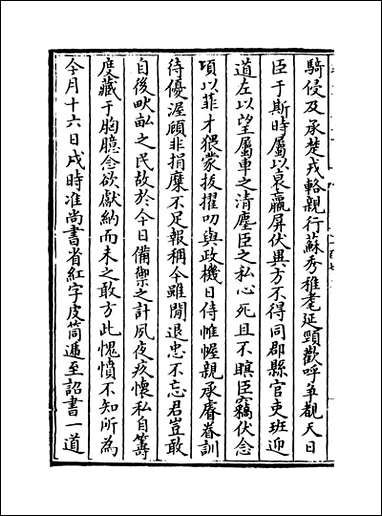 騎侵及承楚戎輅親行蘇秀稚耄延頸歡呼爭覩天日
臣于斯時屬以衰羸屏伏異方不得同郡縣官吏班迎
道左以望屬車之清塵臣之私心死且不瞑臣竊伏念
頃以菲才猥蒙拔擢叨與政機日侍帷幄親承睿眷訓
待優渥顧非捐糜不足報稱今雖閒退忠不忘君豈敢
自後畎畝之民故於今日備禦之計夙夜疚懷私自籌
度藏于胸臆念欲獻納而未之敢方此愧憤不知所為
今月十六日戌時准尚書省紅字皮筒遞至詔書一道